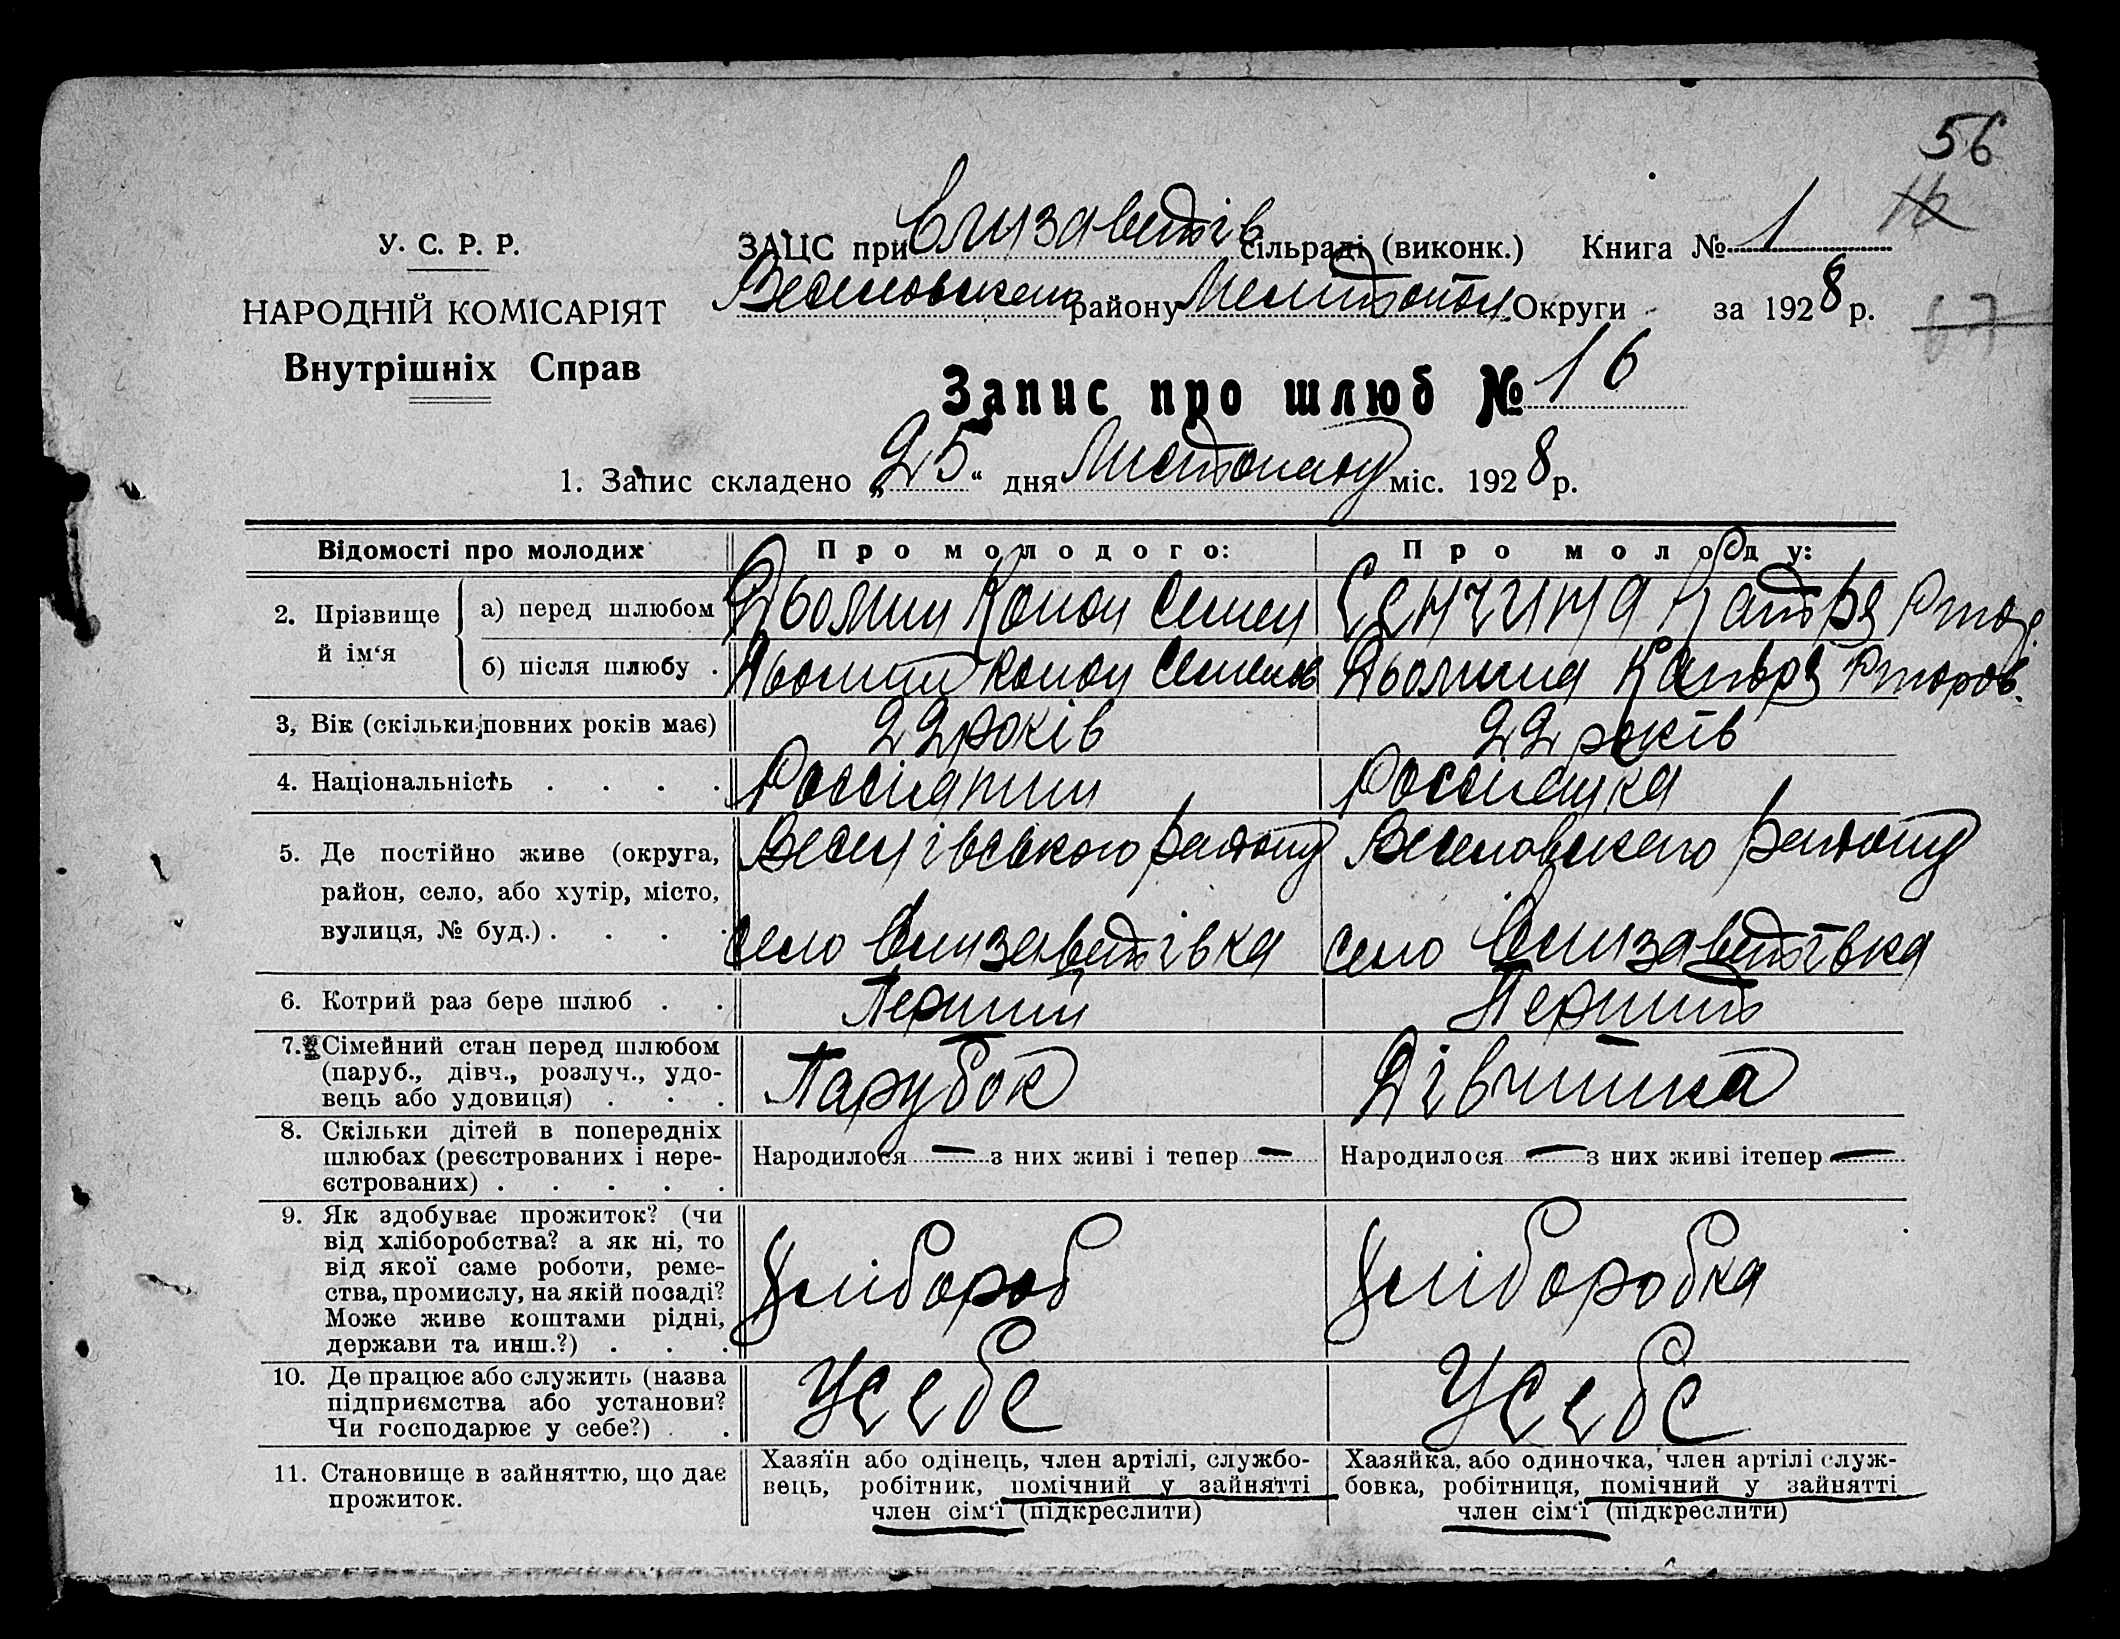 56
16
У. С. Р. Р.
ЗАЦС при Єлизаветів сільраді (виконк.) Книга № 1
НАРОДНІЙ КОМІСАРІЯТ
Веселовском району Мелитопол Округи за 1928 р.
67
Внутрішніх Справ
Запис про шлюб № 16
1. Запис складено „25“ дня Листопаду міс. 1928 р.
Відомості про молодих
Про молодого:
Про молоду:
2. Прізвище й ім‘я
а) перед шлюбом
Дьомин Конон Семен
Сенчина Катря
б) після шлюбу .
Дьомин Конон Семенов
Дьомина Катря
3, Вік (скільки повних років має)
22 років
22 років
4. Національність . . . .
Россіянин
Россіянка
5. Де постійно живе (округа,
район, село, або хутір, місто,
вулиця, № буд.) . . . .
Веселівського району
село Єлизаветівка
Веселовского району
село Єлизаветівка
6. Котрий раз бере шлюб . .
Перший
Перший
7. Сімейний стан перед шлюбом
(паруб., дівч., розлуч., удо-
вець або удовиця) . . .
Парубок
Дівчинка
8. Скільки дітей в попередніх
шлюбах (реєстрованих і нере-
єстрованих) . . . . .
Народилося — з них живі і тепер —
Народилося — з них живі ітепер —
9. Як здобуває прожиток? (чи
від хліборобства? а як ні, то
від якої саме роботи, реме-
ства, промислу, на якій посаді?
Може живе коштами рідні,
держави та инш.?) . . .
Хлібороб
Хлiборобка
10. Де працює або служить (назва
підприємства або установи?
Чи господарює у себе?) . .
У себе
У себе
11. Становище в зайняттю, що дає
прожиток.
Хазяїн або одінець, член артілі, службо-
вець, робітник, помічний у зайнятті
член сім‘ї (підкреслити)
Хазяйка, або одиночка, член артілі служ-
бовка, робітниця, помічний у зайнятті
член сім‘ї (підкреслити)